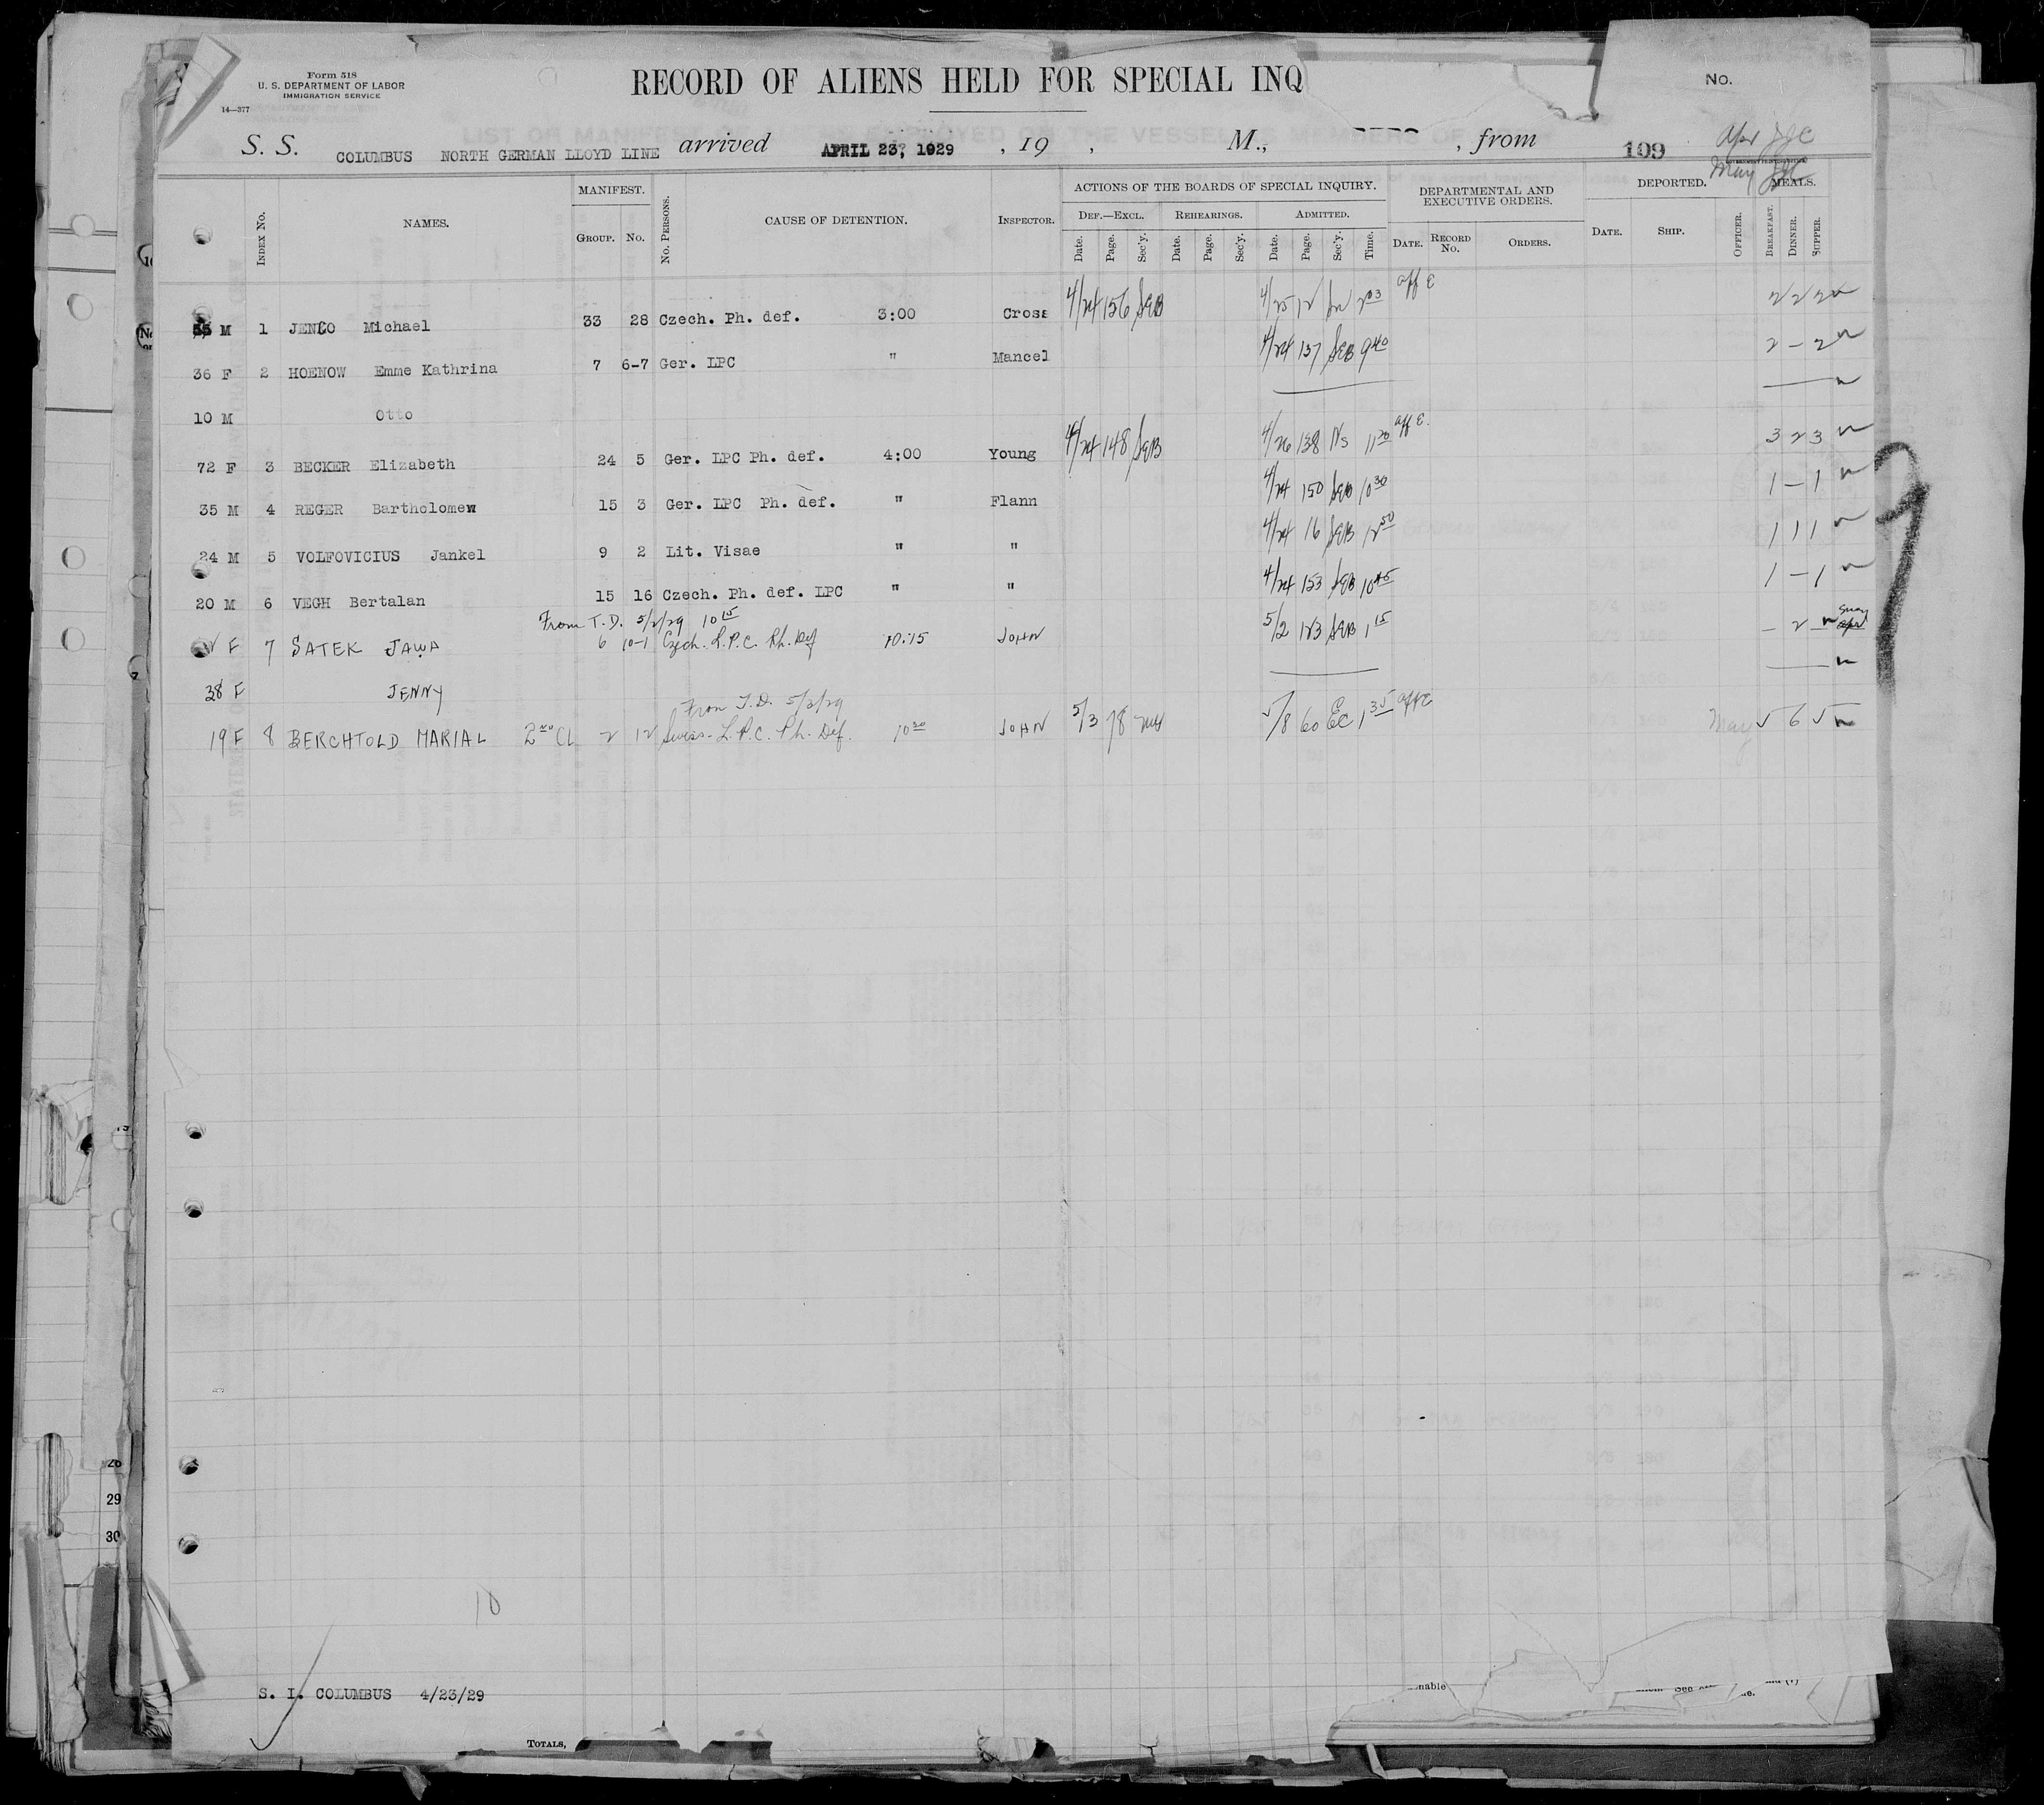 Form 518
U. S. DEPARTMENT OF LABOR
IMMIGRATION SERVICE
14—377
RECORD OF ALIENS HELD FOR SPECIAL INQ
No.
S. S. COLUMBUS NORTH GERMAN LLOYD LINE arrived APRIL 23, 1929 , 19 , M., , from 109
Apr JJC
May
INDEX No. NAMES. MANIFEST. GROUP. No. No. PERSONS. CAUSE OF DETENTION. INSPECTOR. ACTIONS OF THE BOARDS OF SPECIAL INQUIRY. DEPARTMENTAL AND EXECUTIVE ORDERS. DEPORTED. MEALS.
DEF.—EXCL. REHEARINGS. ADMITTED.
Date. Page. Sec'y. Date. Page. Sec'y. Date. Page. Sec'y. Time. DATE. RECORD No. ORDERS. DATE. SHIP. OFFICER. BREAKFAST. DINNER. SUPPER.
55 M 1 JENCO Michael 33 28 Czech. Ph. def. 3:00 Cross 4/24 156 SEB 4/25 12 2 03 aff E 2 2 2
36 F 2 HOENOW Emme Kathrina 7 6-7 Ger. LPC " Mancel 4/24 137 SEB 9 40 2 – 2
10 M Otto
72 F 3 BECKER Elizabeth 24 5 Ger. LPC Ph. def. 4:00 Young 4/24 148 SEB 4/26 138 Ns 11 20 aff E. 3 2 3
35 M 4 REGER Bartholomew 15 3 Ger. LPC Ph. def. " Flann 4/24 150 SEB 10 30 1 – 1
24 M 5 VOLFOVICIUS Jankel 9 2 Lit. Visae " " 4/24 16 SEB 12 50 1 1 1
20 M 6 VEGH Bertalan 15 16 Czech. Ph. def. LPC " " 4/24 153 SEB 10 45 1 – 1
From T.D. 5/2/29 10 15
F 7 SATEK JAWA 6 10-1 Czech. L.P.C. Ph. Def 10:15 JOHN 5/2 123 SEB 1 15 – 2 –
38 F JENNY
From T.D. 5/3/29
19 F 8 BERCHTOLD MARIAL 2ND CL 2 12 Swiss- L.P.C. Ph. Def. 10 30 JOHN 5/3 78 5/8 60 EC 1 35 aff E May 5 6 5
28
29
30
10
S. I. COLUMBUS 4/23/29
TOTALS,